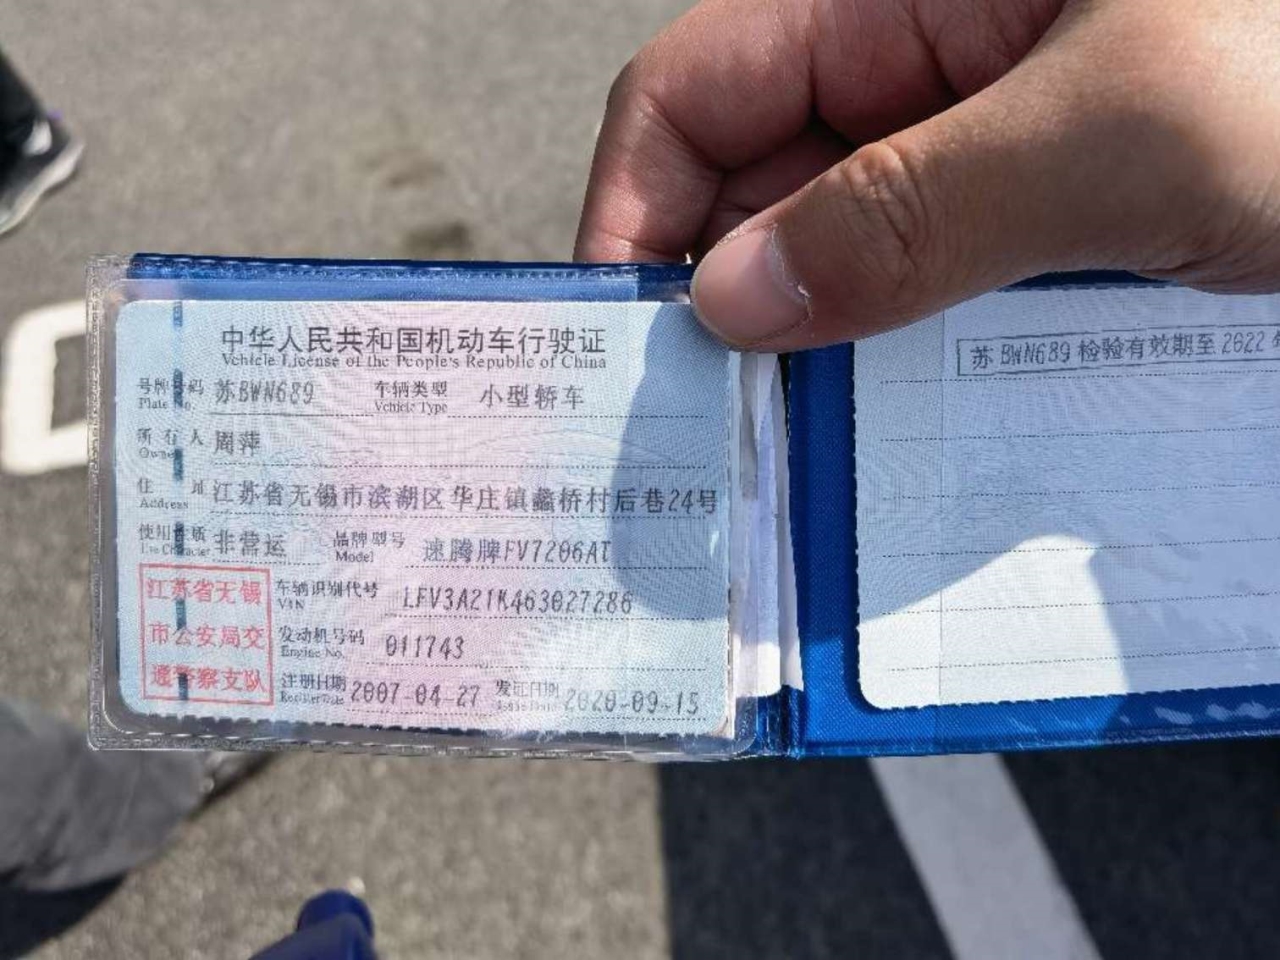 中华人民共和国机动车行驶证
Vehicle License of the People's Republic of China
号牌号码 苏BWN689 车辆类型 小型轿车
Plate No. Vehicle Type
所有人 周萍
Owner
住址 江苏省无锡市滨湖区华庄镇蠡桥村后巷24号
Address
使用性质 非营运 品牌型号 速腾牌FV7206AT
Use Character Model
车辆识别代号 LFV3A21K463027286
VIN
发动机号码 011743
Engine No.
注册日期 2007-04-27 发证日期 2020-09-15
Register Date Issue Date
江苏省无锡
市公安局交
通警察支队
苏BWN689 检验有效期至2022年